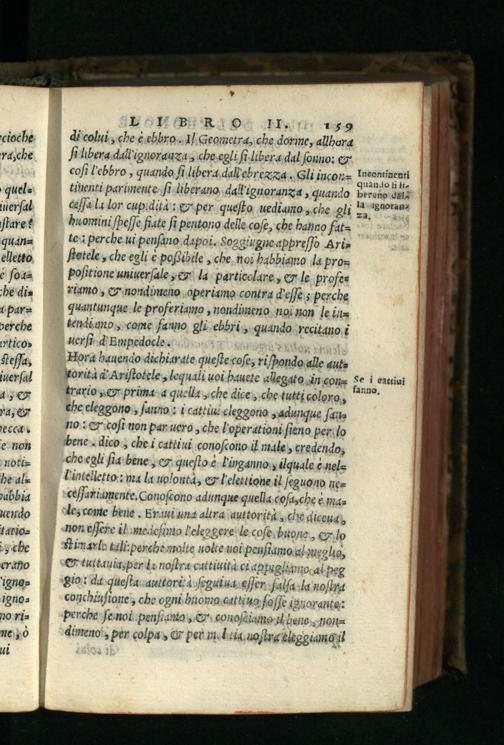 LIBRO II. 159
di colui, che è ebbro. Il Geometra, che dorme, allhora
si libera dall'ignoranza, che egli si libera dal sonno: &
cosi l'ebbro, quando si libera dall'ebrezza. Gli incon=
tinenti parimente si liberano dall'ignoranza, quando
cessa la lor cupidità: & per questo uediamo, che gli
huomini spesse fiate si pentono delle cose, che hanno fat=
te: perche ui pensano dapoi. Soggiugne appresso Ari
stotele, che egli è possibile, che noi habbiamo la pro=
positione uniuersale, & la particolare, & le profe=
riamo, & nondimeno operiamo contra d'esse; perche
quantunque le proferiamo, nondimeno noi non le in=
tendiamo, come fanno gli ebbri, quando recitano i
uersi d'Empedocle.
Hora hauendo dichiarate queste cose, rispondo alle aut=
torità d'Aristotele, lequali uoi hauete allegato in con=
trario, & prima a quella, che dice, che tutti coloro,
che eleggono, sanno: i cattiui eleggono, adunque san=
no: & cosi non par uero, che l'operationi sieno per lo
bene. dico, che i cattiui conoscono il male, credendo,
che egli sia bene, & questo è l'inganno, ilquale è nel=
l'intelletto: ma la uolontà, & l'elettione il seguono ne=
cessariamente. Conoscono adunque quella cosa, che è ma=
le, come bene. Eraui una altra auttorità, che diceua,
non essere il medesimo l'eleggere le cose buone, & lo
stimarle tali: perche molte uolte noi pensiamo al meglio,
& tuttauia, per la nostra cattiuità ci appigliamo al peg
gio: da questa autorità seguiua esser falsa la nostra
conchiusione, che ogni huomo cattiuo fosse ignorante:
perche se noi pensiamo, & conosciamo il bene, non=
dimeno, per colpa, & per malitia nostra eleggiamo il
Incontinenti
quando si li=
berano dal=
la ignoran=
za.
Se i cattiui
sanno.
cioche
ra, che
quel=
uersal
stare?
quan=
elletto
è soa=
che di=
a par=
perche
artico=
stessa,
iuersal
a, &
ra, &
pecca.
ie non
noti=
he al=
habbia
uendo
tatio=
i, che
erano
igno=
igno=
no ri=
ne, ò
ui